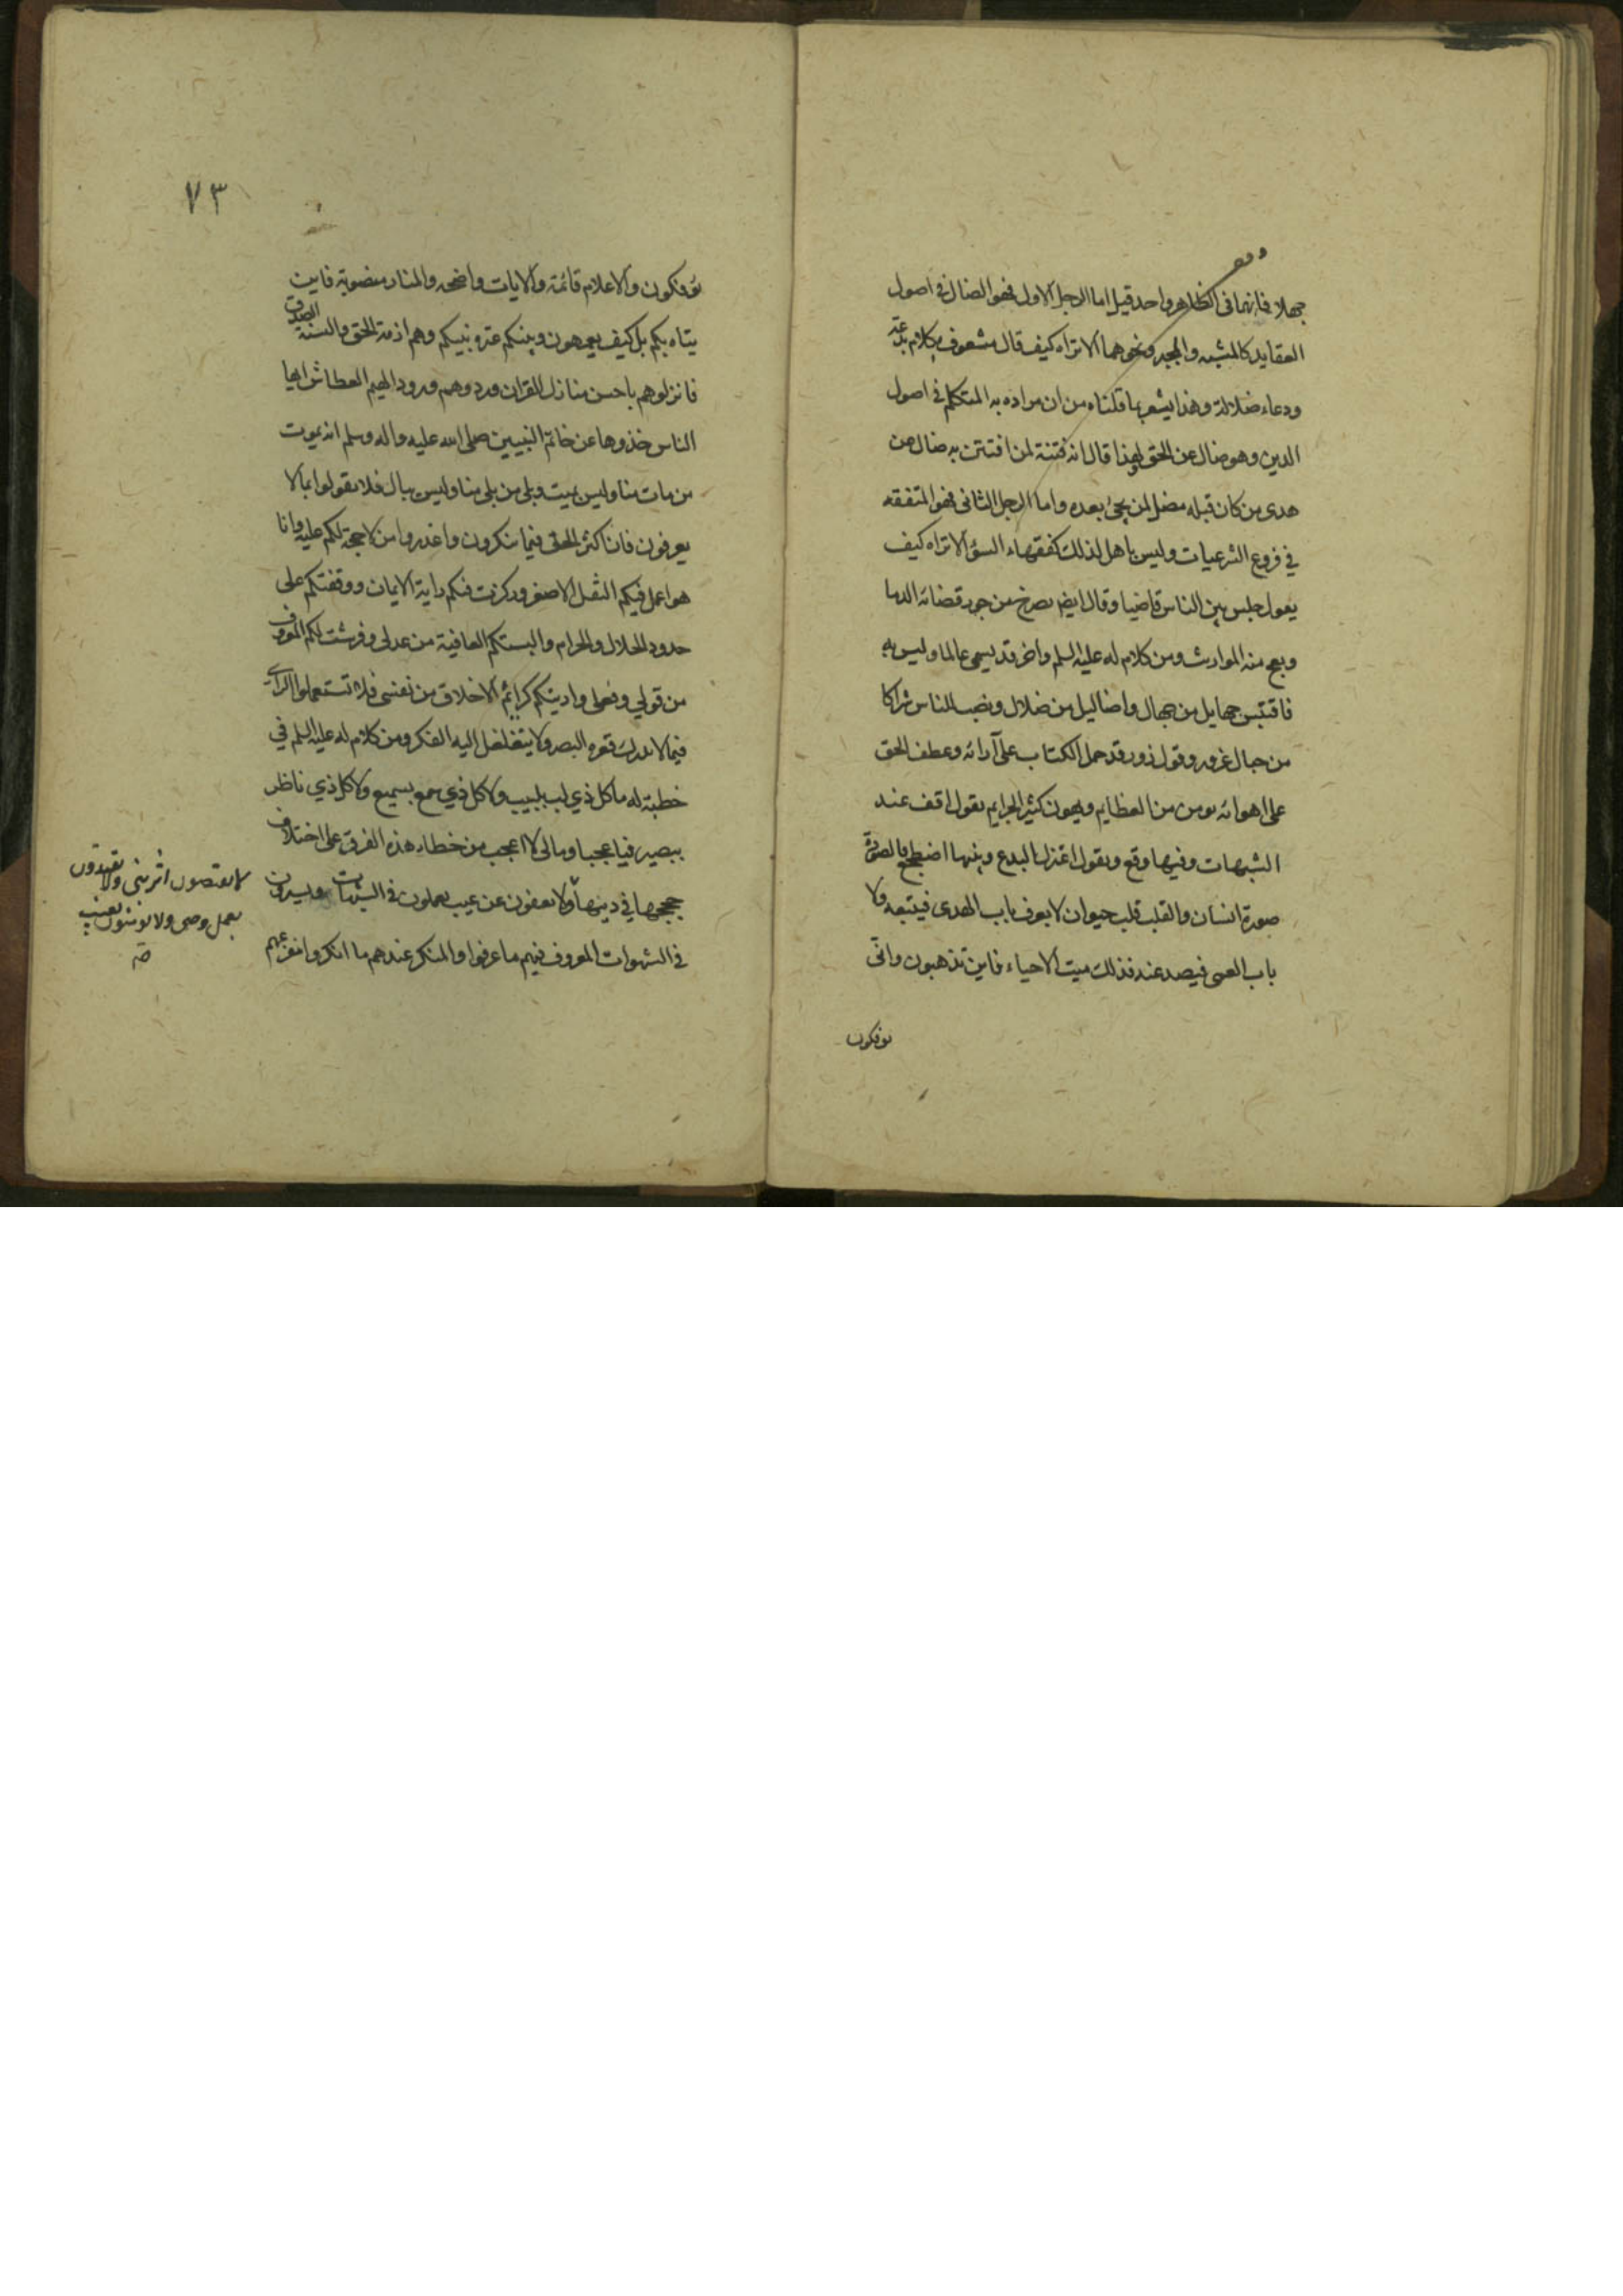 جهلا فانهما فى الظاهر واحد قيل اما الرجل الاول فهو الضال فى اصول
العقايد كالمشبه والمجبر ونحوهما الا تراه كيف قال مشعوف بكلام بدعة
ودعاء ضلالة وهذا يشعر بما قلناه من ان مراده به المتكلم فى اصول
الدين وهو ضال عن الحق لهذا قال انه فتنة لمن افتتن به ضال عن
هدى من كان قبله مضل لمن يجئ بعده واما الرجل الثانى فهو المتفقه
في فروع الشرعيات وليس باهل لذلك كفقهاء السؤ الا تراه كيف
يقول جلس بين الناس قاضيا وقال ايض يصرخ من جور قضائه الدما
ويعج منه المواريث ومن كلام له عليه السلم واخر قد يسمى عالما وليس به
فاقتبس جهايل من جهال واضاليل من ضلال ونصب للناس شراكا
من حبال غرور وقول زور قد حمل الكتاب على آرائه وعطف الحق
على اهوائه يومن من العظايم ويهون كثير الجرايم يقول اقف عند
الشبهات وفيها وقع ويقول اعتزل البدع وبينها اضطجع فالصورة
صورة انسان والقلب قلب حيوان لا يعرف باب الهدى فيتبعه ولا
باب العمى فيصد عنه فذلك ميت الاحياء فاين تذهبون وانّى
توفكون
٧٣
توفكون والاعلام قائمة والايات واضحه والمنار منصوبة فاين
يتاه بكم بل كيف يعمهون وبينكم عترة نبيكم وهم ازمة الحق والسنة الصدق
فانزلوهم باحسن منازل القران وردوهم ورود الهيم العطاش ايها
الناس خذوها عن خاتم النبيين صلى الله عليه واله وسلم انه يموت
من مات منا وليس بميت ويبلى من بلى منا وليس ببال فلا تقولوا بما لا
يعرفون فان اكثر الحق فيما تنكرون واعذروا من لا حجة لكم عليه وانا
هو اعمل فيكم الثقل الاصغر وركزت فيكم راية الايمان ووقفتكم على
حدود الحلال والحرام والبستكم العافية من عدلى وفرشت لكم المعروف
من قولي وفعلى واريتكم كرائم الاخلاق من نفسى فلا تستعملوا الراي
فيما لا يدرك قعره البصر ولا يتغلغل اليه الفكر ومن كلام له عليه السلم في
خطبة له ما كل ذي لب بلبيب ولا كل ذي سمع بسميع ولا كل ذي ناظر
ببصير فيا عجبا ومالى لا اعجب من خطاء هذه الفرق على اختلاف
حججها في دينها ولا يعفون عن عيب يعملون فى الشبهات ويسيرون
فى الشهوات المعروف فيهم ما عرفوا والمنكر عندهم ما انكروا مفزعهم
لا يقتصون اثر نبى ولا يقتدون
بعمل وصى ولا يومنون بغيب